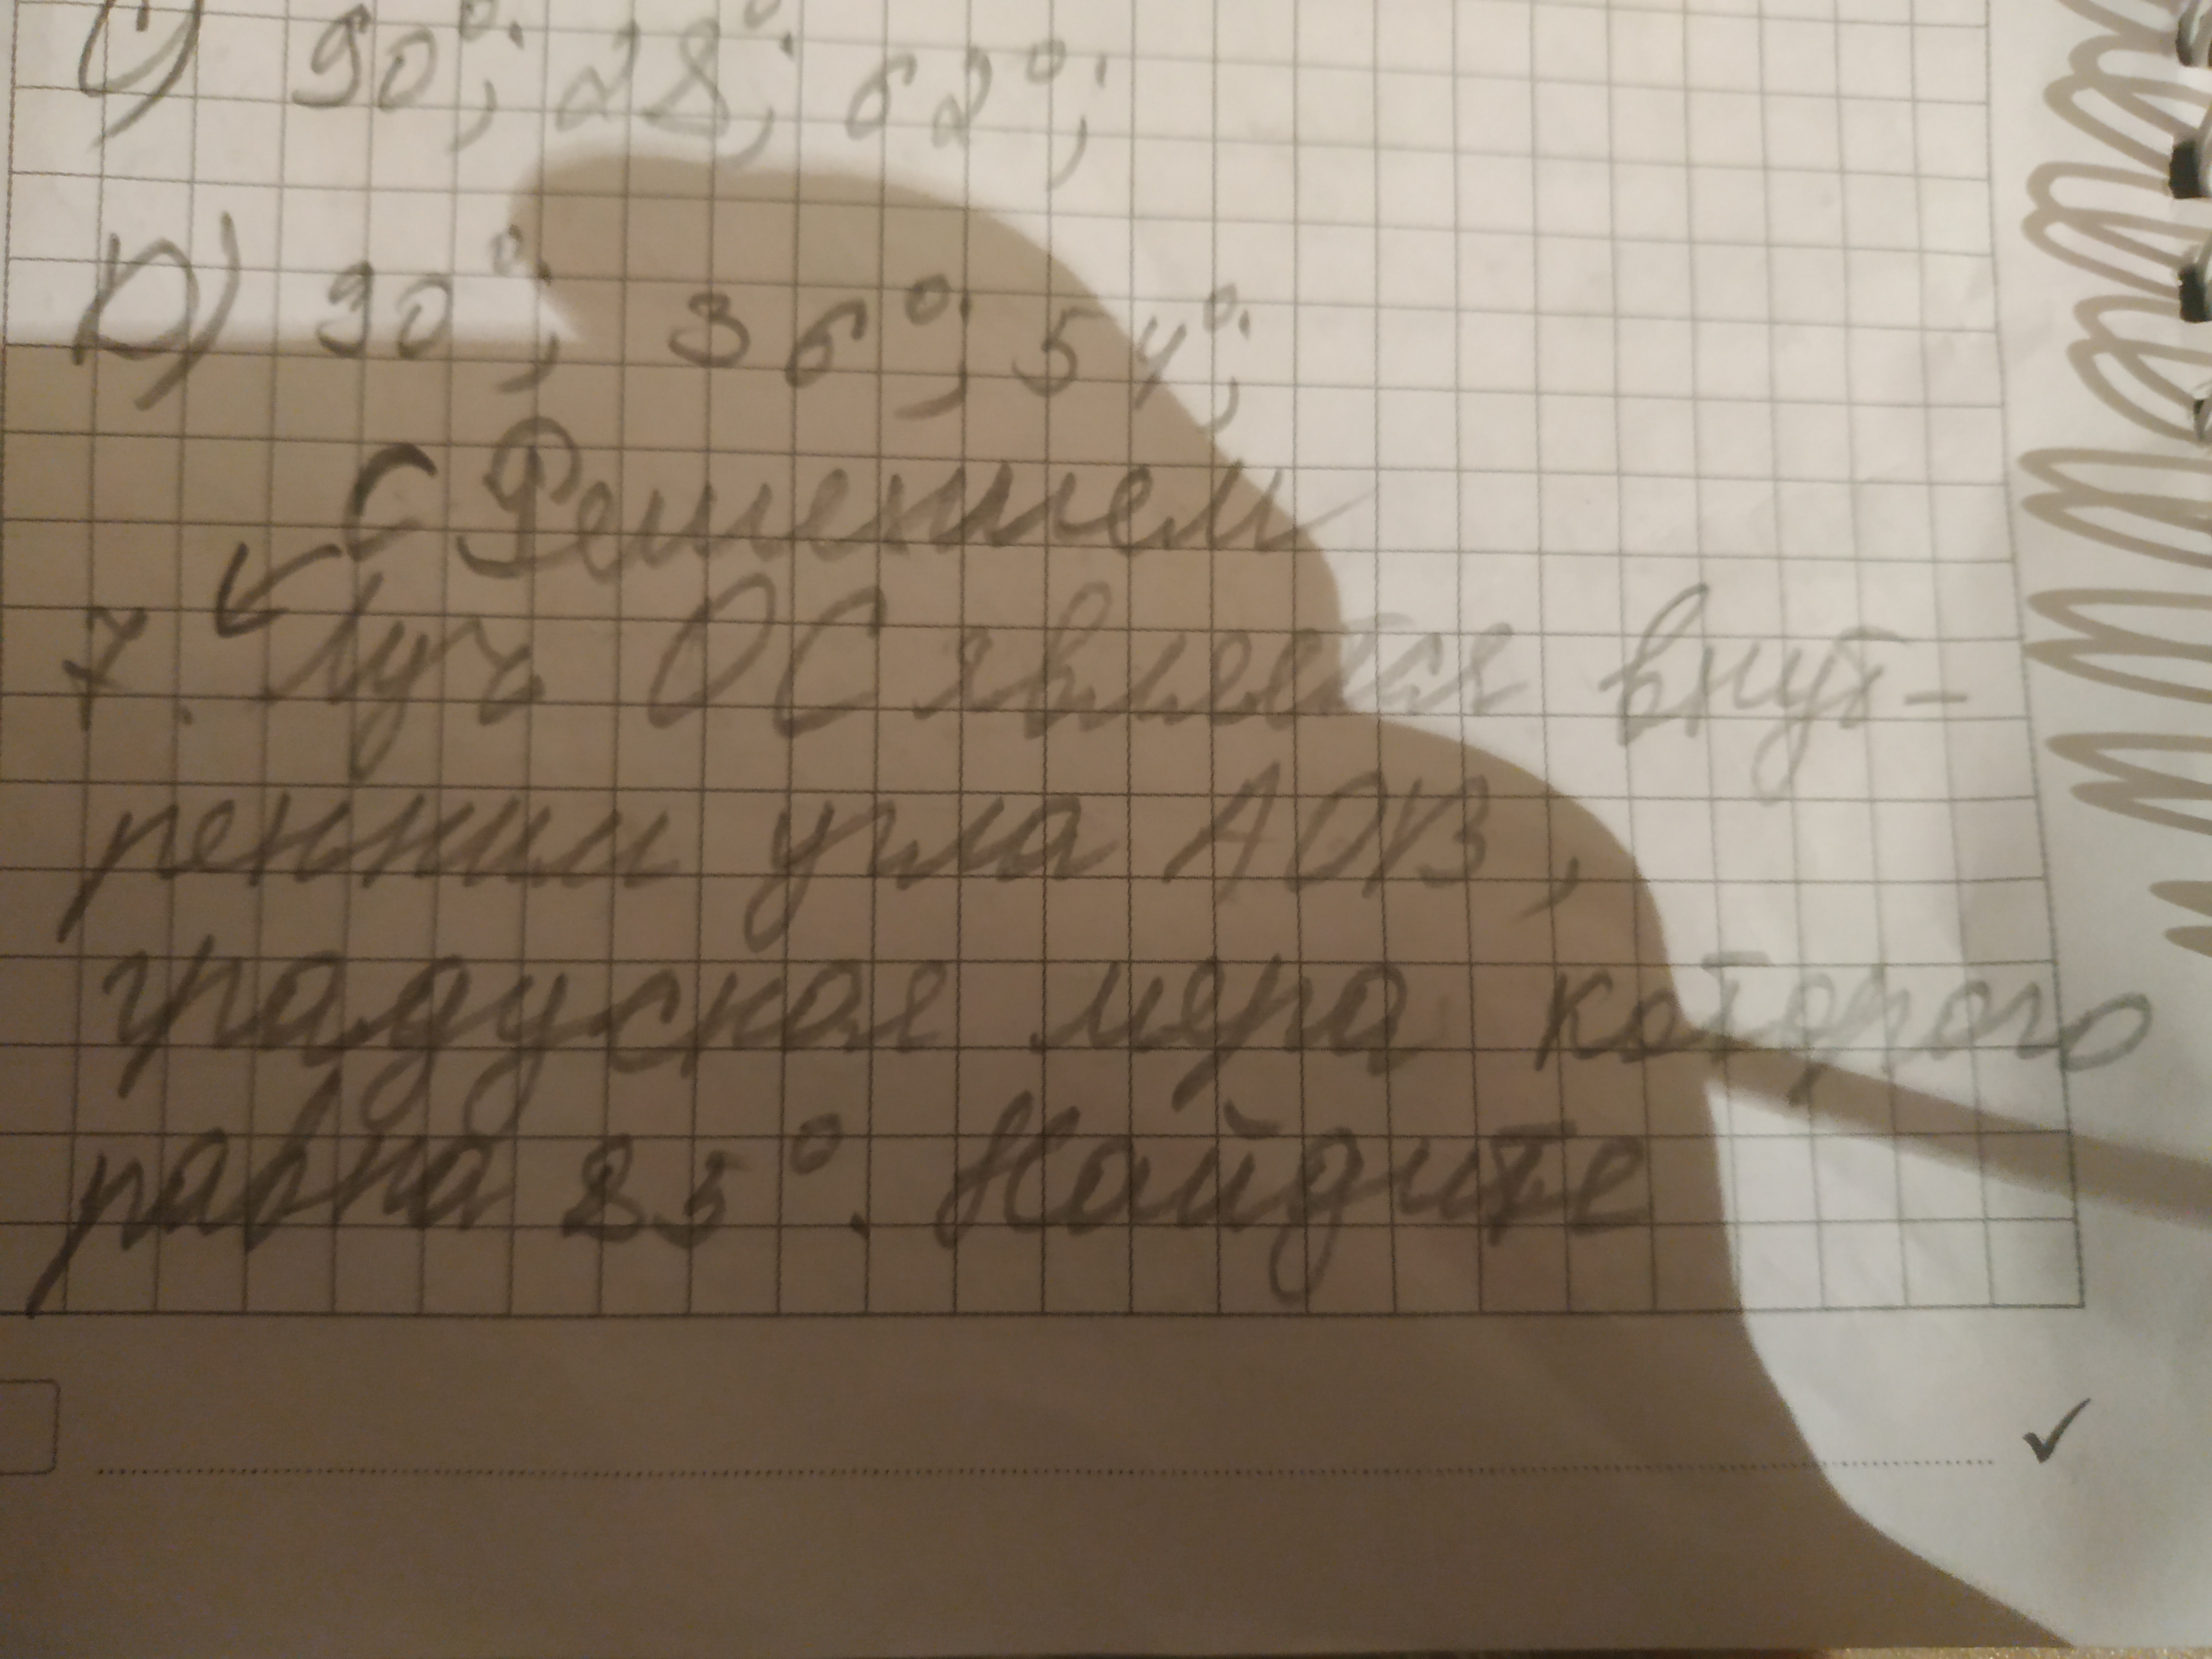 C) 90°; 28°; 62°;
D) 90°; 36°; 54°;
С Решением
7. Луч ОС является внут-
ренним угла АОВ,
градусная мера которого
равна 85°. Найдите